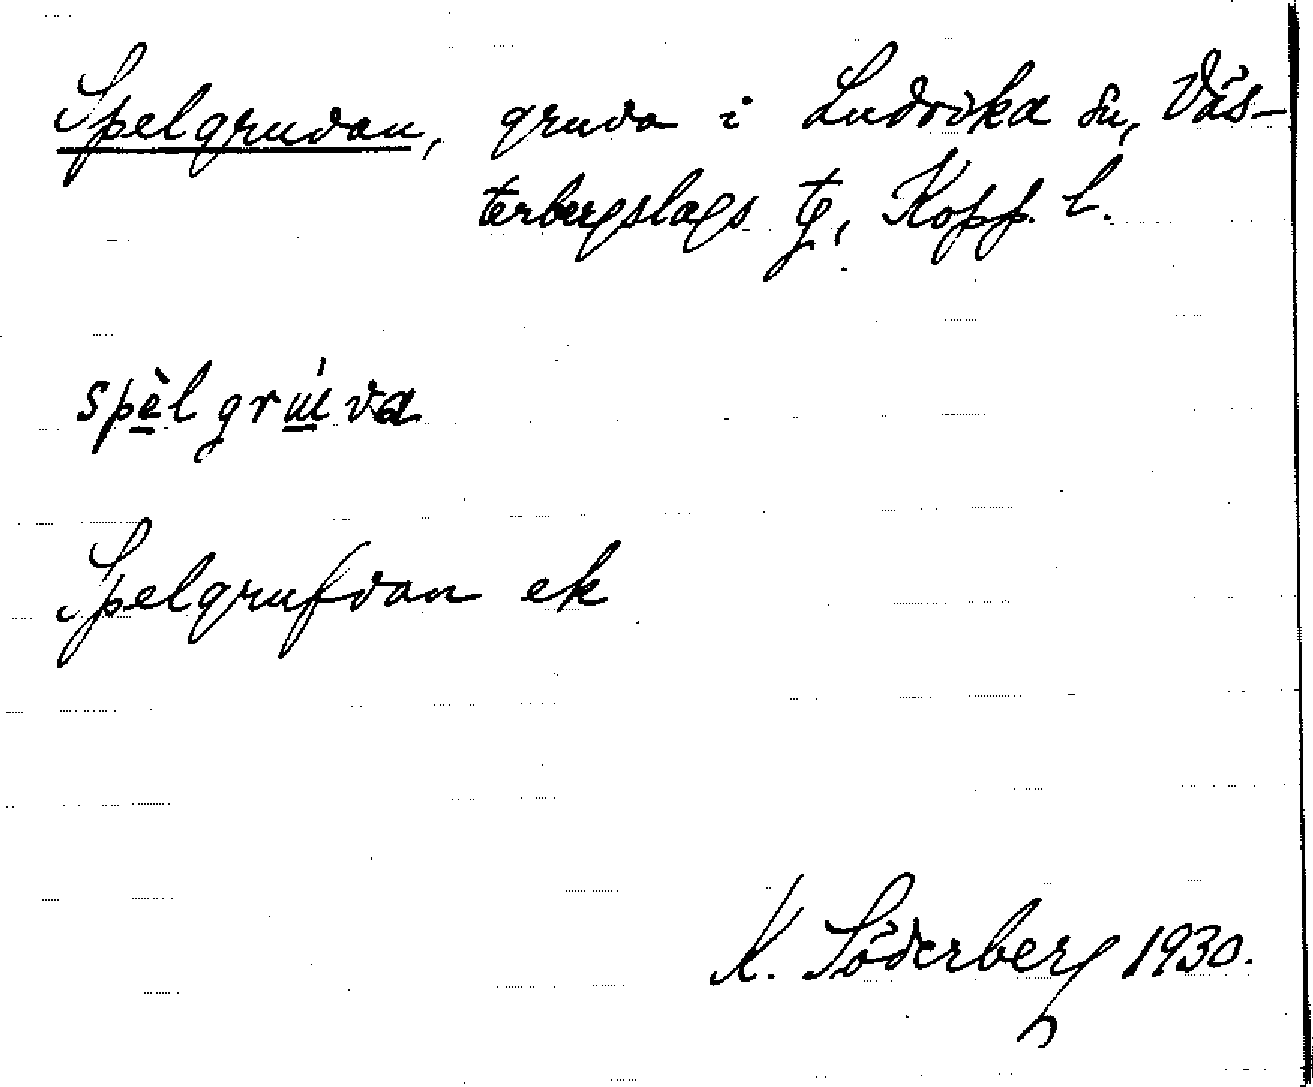 Spelgruvan, gruva i Ludvika sn, Väs-
terbergslags tg, Kopp. l.
spèlgrúva
Spelgrufvan ek
K. Söderberg 1930.